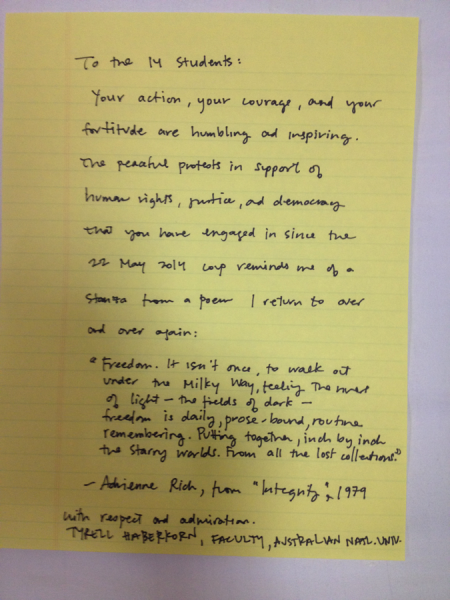 To the 14 students:
Your action, your courage, and your
fortitude are humbling ad inspiring.
The peaceful protests in support of
human rights, justice, ad democracy
that you have engaged in since the
22 May 2014 coup reminds me of a
stanza from a poem I return to over
and over again:
"Freedom. It isn't once, to walk out
under the Milky Way, feeling the rivers
of light — the fields of dark —
freedom is daily, prose-bound, routine
remembering. Putting together, inch by inch
the starry worlds. From all the lost collections."
— Adrienne Rich, from "Integrity", 1979
with respect and admiration.
TYRELL HABERKORN, FACULTY, AUSTRALIAN NATL. UNIV.